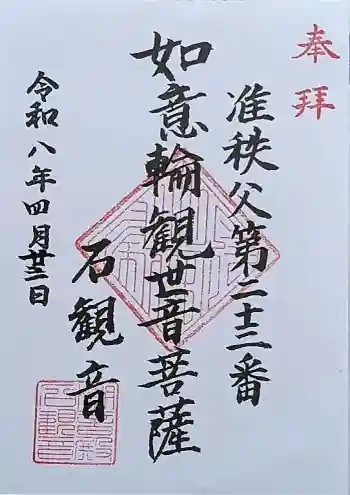 奉拝
准秩父第二十三番
如意輪觀世音菩薩
石観音
令和八年四月廿三日